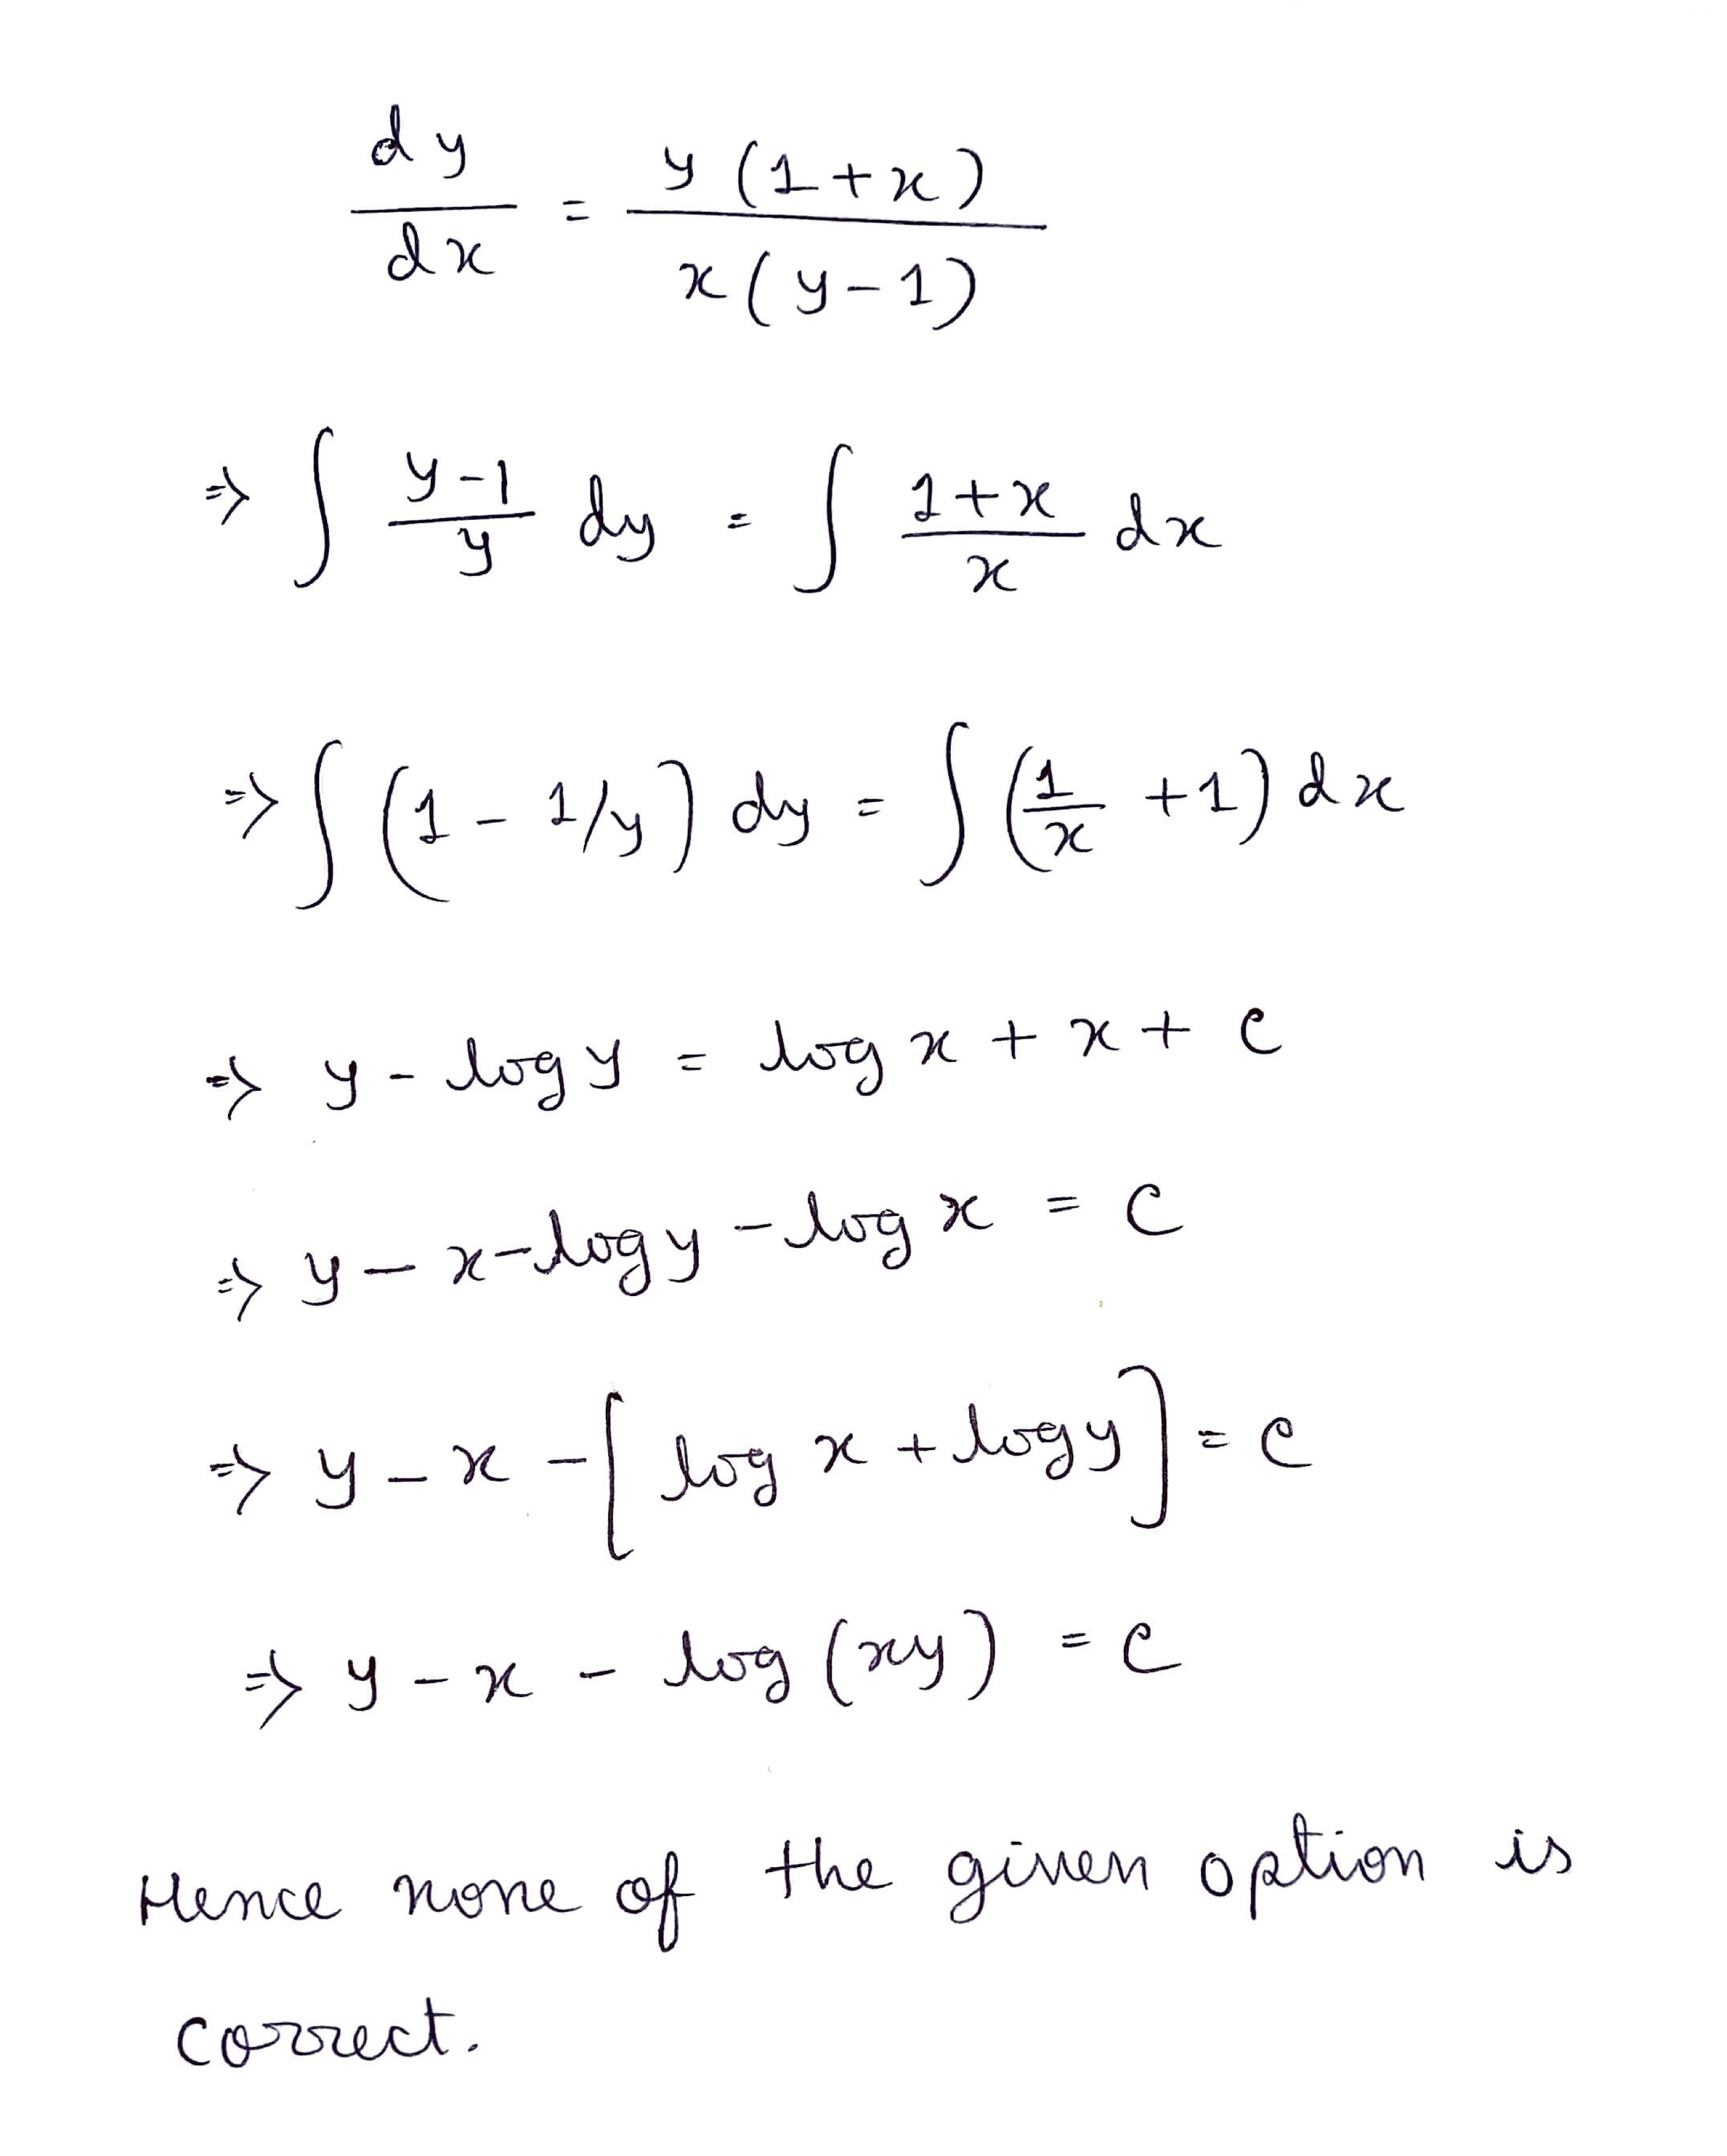 dy/dx = y(1+x)/x(y-1)
⇒ ∫ y-1/y dy = ∫ 1+x/x dx
⇒ ∫ (1 - 1/y) dy = ∫ (1/x + 1) dx
⇒ y - log y = log x + x + c
⇒ y - x - log y - log x = c
⇒ y - x - [log x + log y] = c
⇒ y - x - log (xy) = c
Hence none of the given option is
correct.